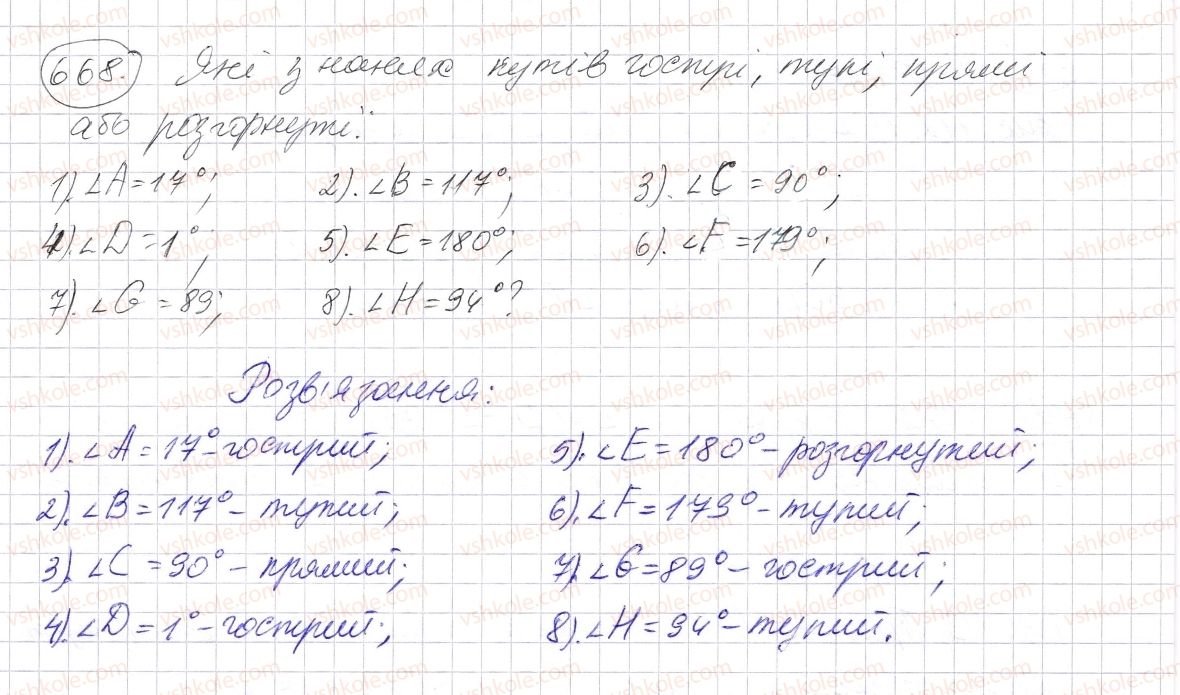 668. Які з наних кутів гострі, тупі, прямі
або розгорнуті:
1). ∠A = 17°; 2). ∠B = 117°; 3). ∠C = 90°;
4). ∠D = 1°; 5). ∠E = 180°; 6). ∠F = 179°;
7). ∠G = 89; 8). ∠H = 94°?
Розв'язання:
1). ∠A = 17° - гострий;
2). ∠B = 117° - тупий;
3). ∠C = 90° - прямий;
4). ∠D = 1° - гострий;
5). ∠E = 180° - розгорнутий;
6). ∠F = 179° - тупий;
7). ∠G = 89° - гострий;
8). ∠H = 94° - тупий.